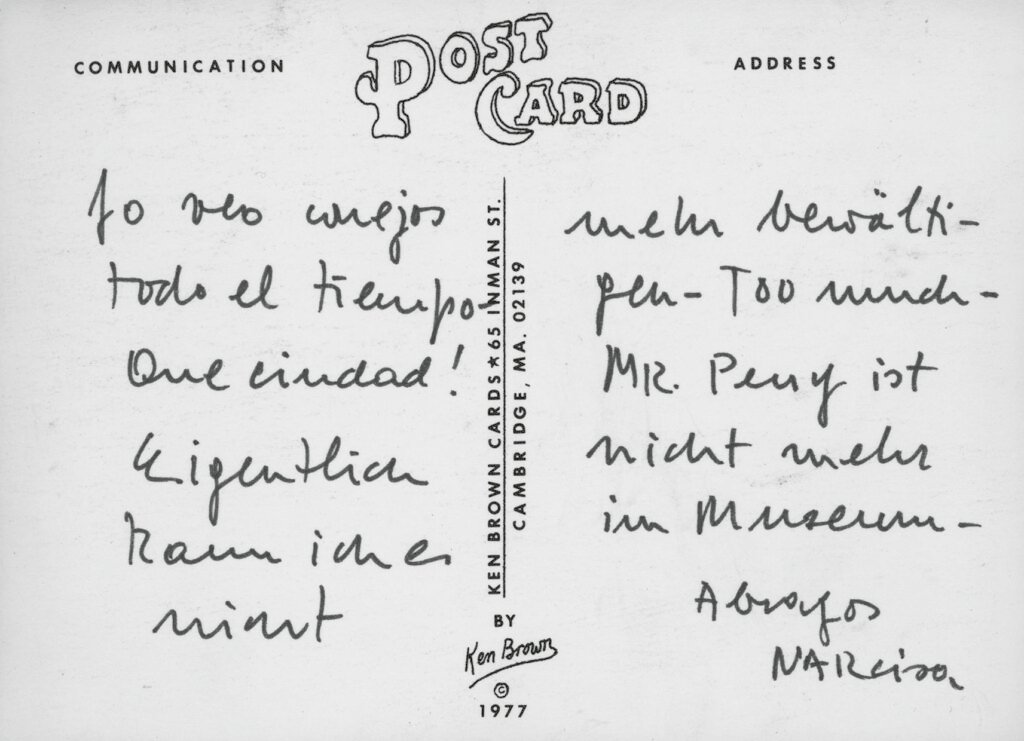 COMMUNICATION
POST CARD
ADDRESS
Yo veo conejos
todo el tiempo-
Que ciudad!
Eigentlich
kann ich es
nicht
mehr bewälti-
gen- Too much-
MR. Perry ist
nicht mehr
im Museum-
Abrazos
NARciso.
KEN BROWN CARDS★65 INMAN ST.
CAMBRIDGE, MA. 02139
BY
Ken Brown
© 
1977